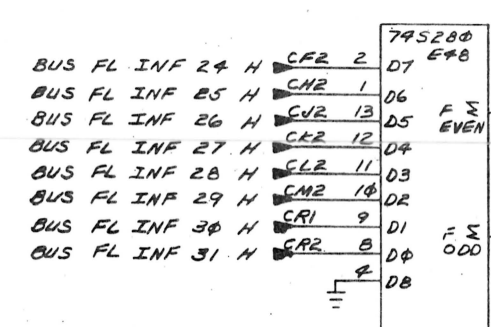 74S28Ø
E48
BUS FL INF 24 H CF2 2 D7
BUS FL INF 25 H CH2 1 D6
BUS FL INF 26 H CJ2 13 D5
F Σ EVEN
BUS FL INF 27 H CK2 12 D4
BUS FL INF 28 H CL2 11 D3
BUS FL INF 29 H CM2 1Ø D2
BUS FL INF 3Ø H CR1 9 D1
F Σ ODD
BUS FL INF 31 H CR2 8 DØ
4 D8